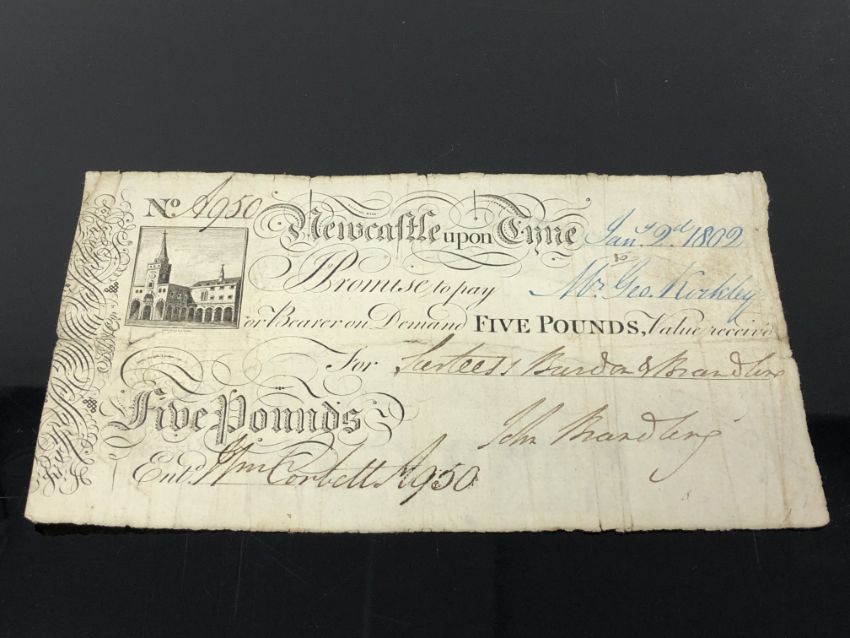 No. A950 Newcastle upon Tyne Jany. 2d. 1802
I Promise to pay Mr. Geo. Kirkley
or Bearer on Demand FIVE POUNDS, Value receiv'd
For Surtees Burdon & Brandling
Five Pounds
John Brandling
Entd. Wm Corbett A950